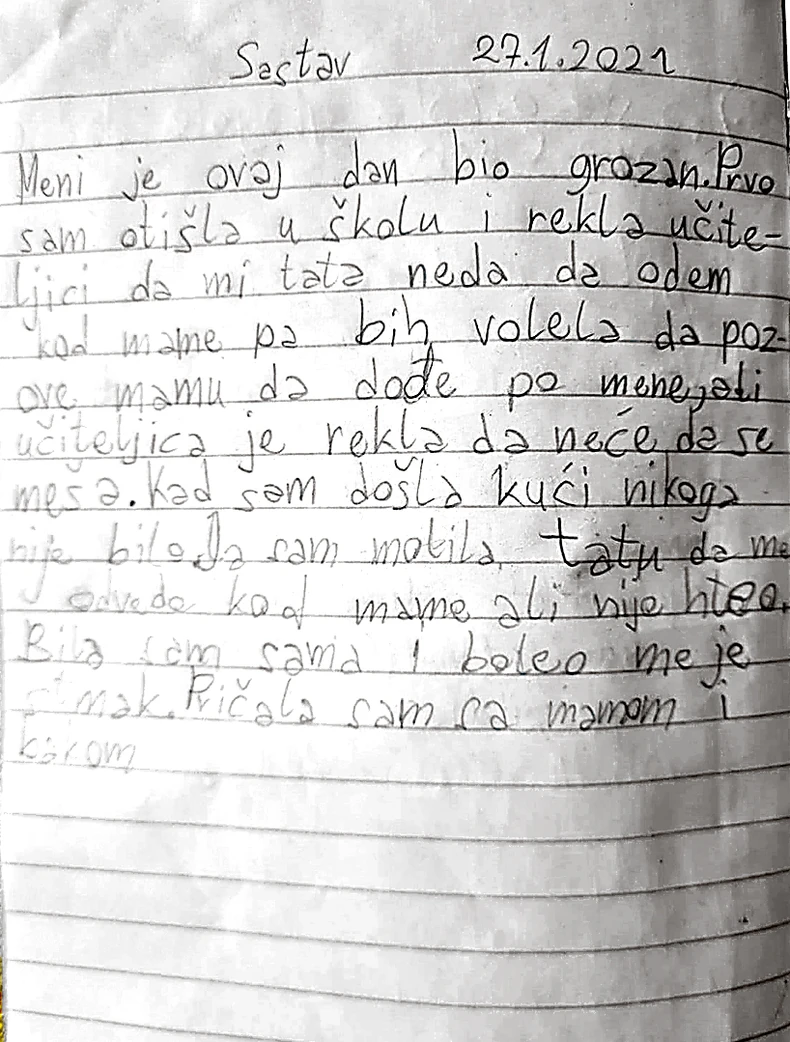 Sastav 27.1.2021
Meni je ovaj dan bio grozan. Prvo
sam otišla u školu i rekla učite-
ljici da mi tata neda da odem
kod mame pa bih volela da poz-
ove mamu da dođe po mene, ali
učiteljica je rekla da neće da se
meša. Kad sam došla kući nikoga
nije bilo. Ja sam molila tatu da me
odvede kod mame ali nije hteo.
Bila sam sama i boleo me je
stomak. Pričala sam sa mamom i